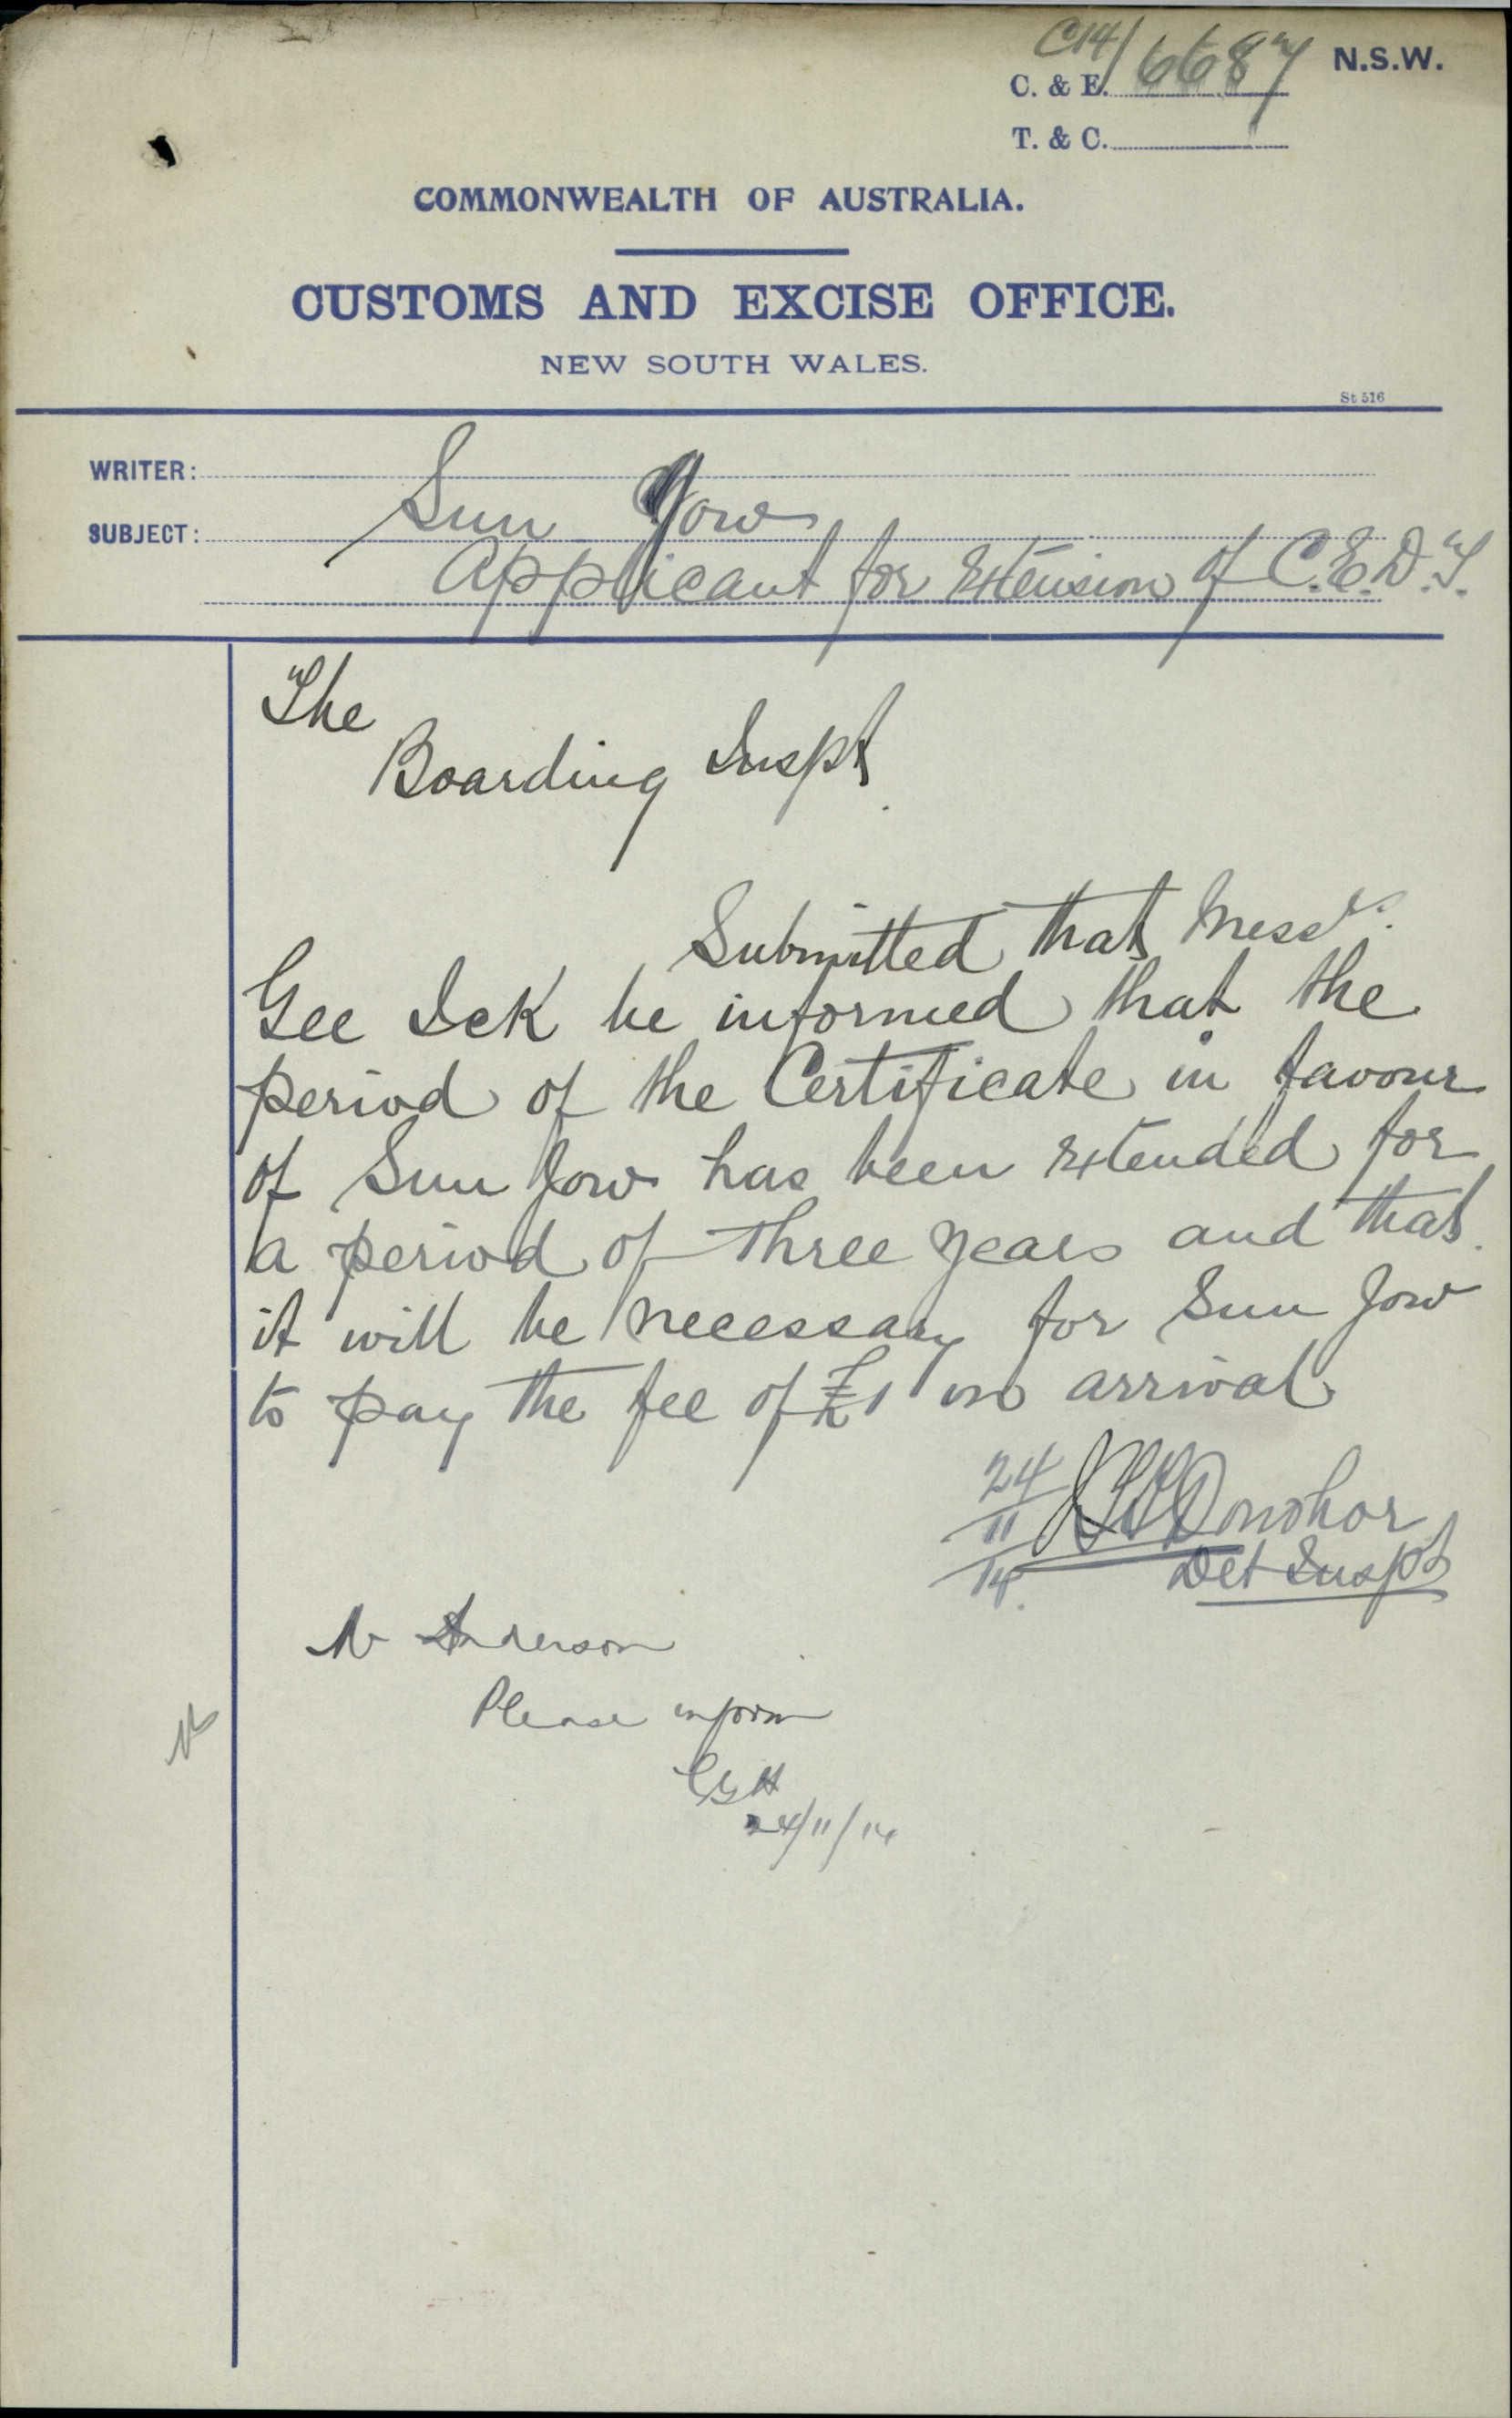 C14/6687 N.S.W.
C. & E.
T. & C.
COMMONWEALTH OF AUSTRALIA.
CUSTOMS AND EXCISE OFFICE.
NEW SOUTH WALES.
St 516
WRITER:
SUBJECT: Sun Jow
Applicant for Extension of C.E.D.T.
The
Boarding Inspt.
Submitted that Messrs.
Gee Ick be informed that the
period of the Certificate in favour
of Sun Jow has been extended for
a period of three years and that
it will be necessary for Sun Jow
to pay the fee of £1 on arrival
24/11/14 Donohoe
Det Inspt
Mr Anderson
Please inform
24/11/14